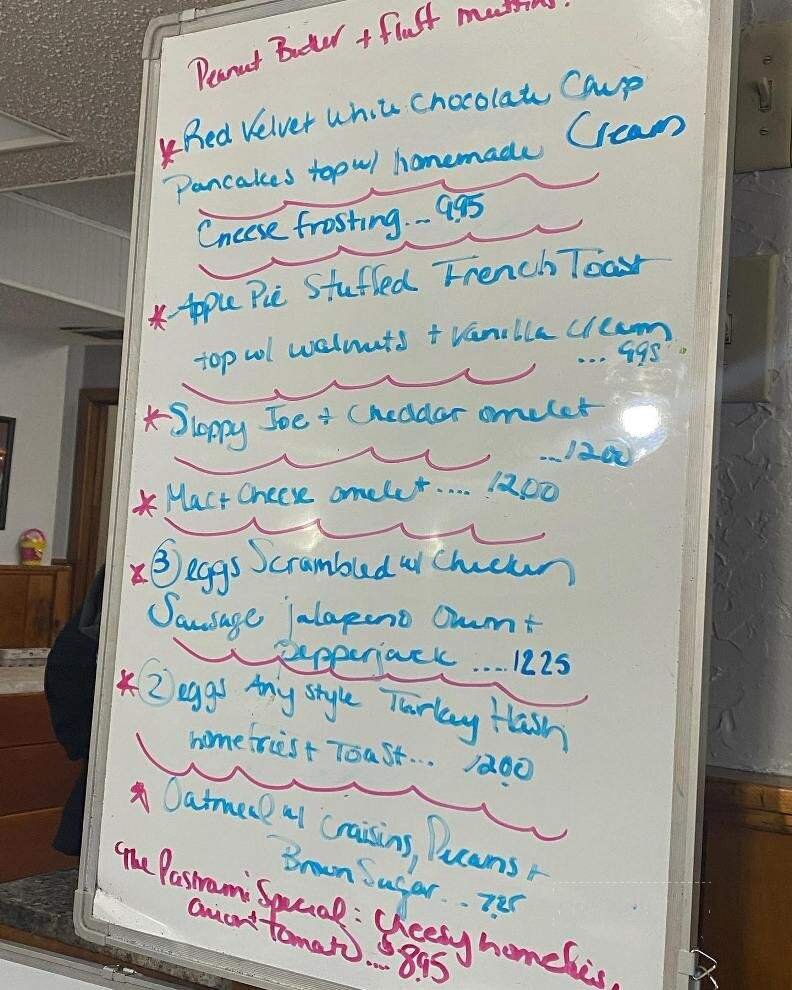 Peanut Butter + Fluff muffins!
* Red Velvet White Chocolate Chip
Pancakes top w/ homemade Cream
Cheese frosting... 9.95
* Apple Pie Stuffed French Toast
top w/ walnuts + vanilla cream
... 9.95
* Sloppy Joe + Cheddar omelet
...12.00
* Mac + Cheese omelet.... 12.00
* 3 eggs Scrambled w/ Chicken
Sausage jalapeno Onion +
Pepperjack ....12.25
* 2 eggs Any style Turkey Hash
homefries + Toast... 12.00
* Oatmeal w/ Craisins, Pecans +
Brown Sugar... 7.25
"The Pastrami Special: Cheesy homefries,
onion + tomato.... $8.95